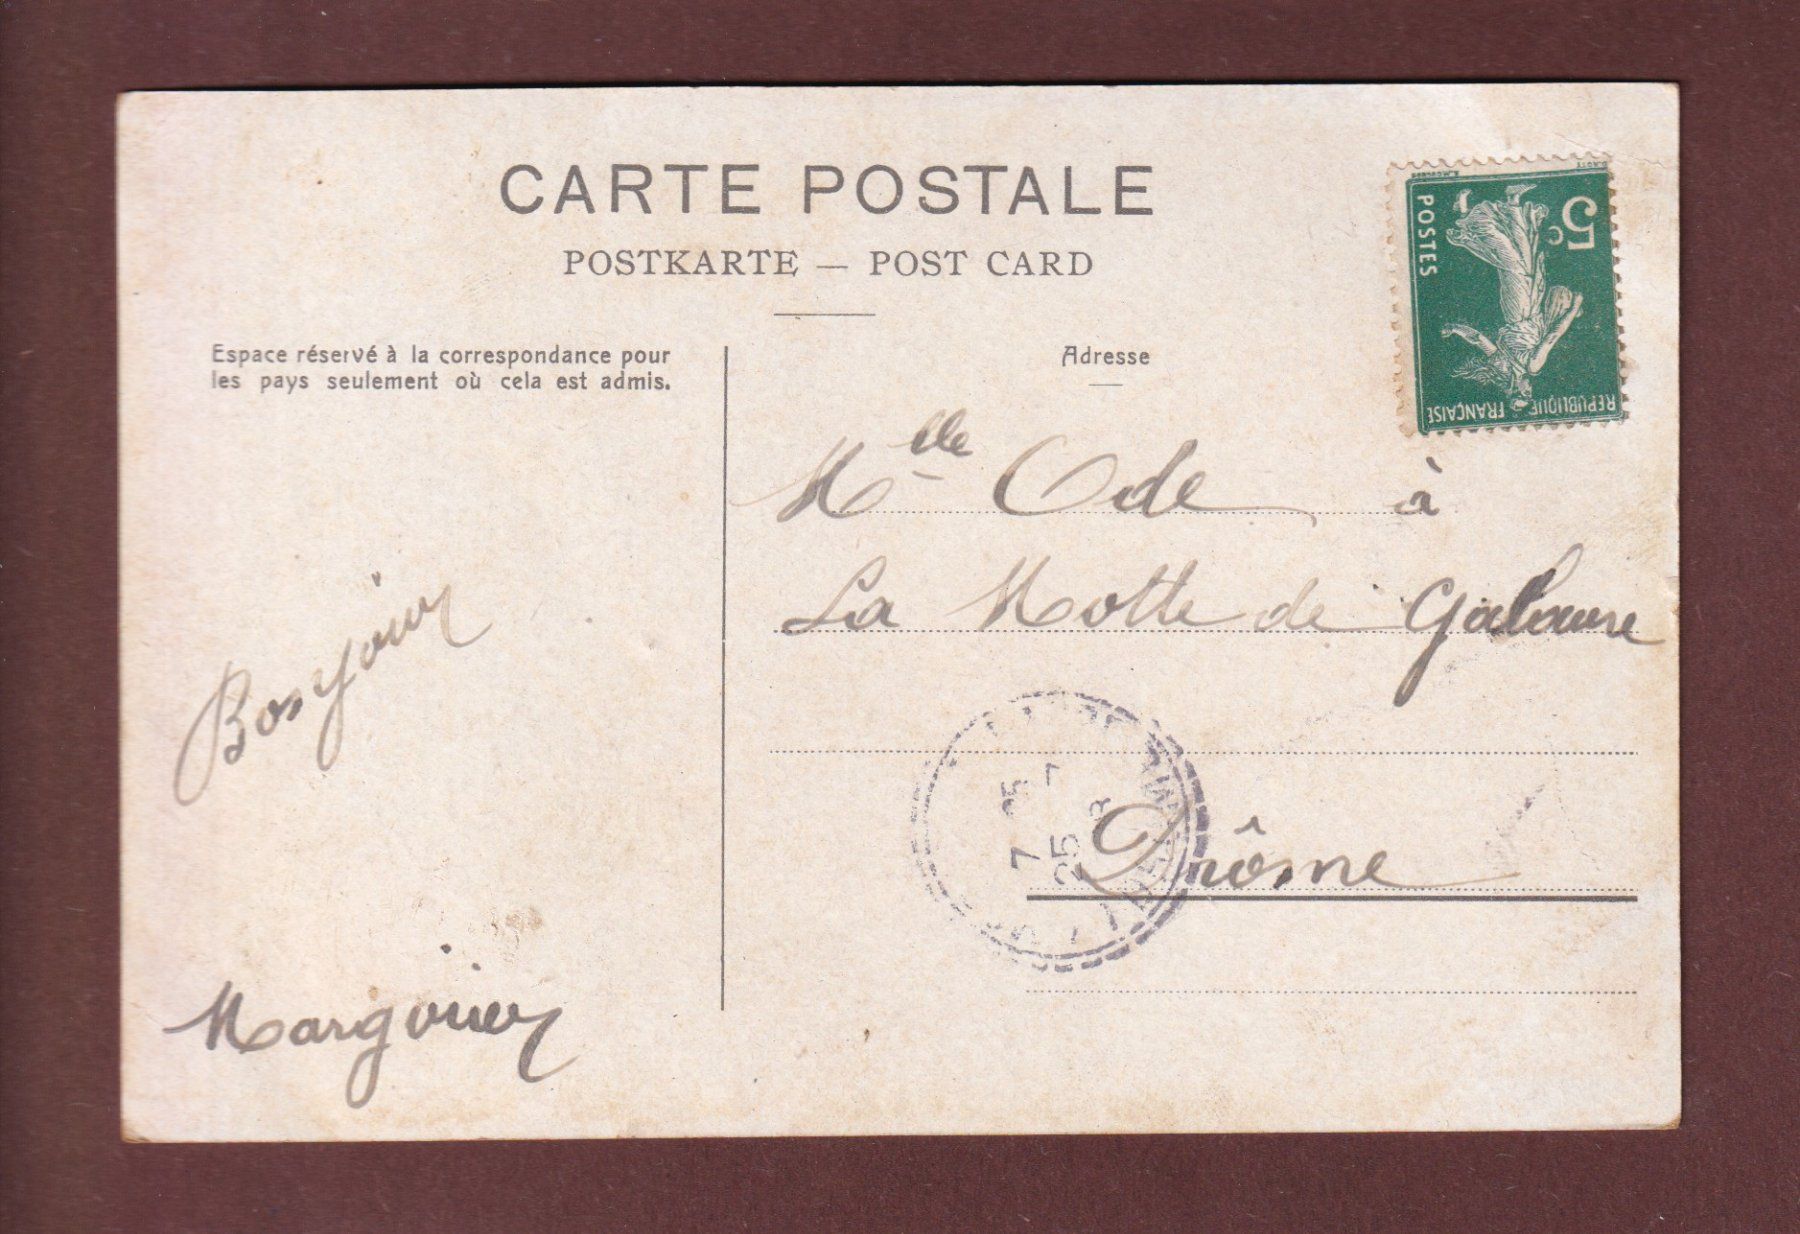 CARTE POSTALE
POSTKARTE — POST CARD
Espace réservé à la correspondance pour
les pays seulement où cela est admis.
Bonjour
Adresse
Mlle Ode à
La Motte de Galaure
Drôme
7 25
25 7
POSTES
5c
REPUBLIQUE FRANÇAISE